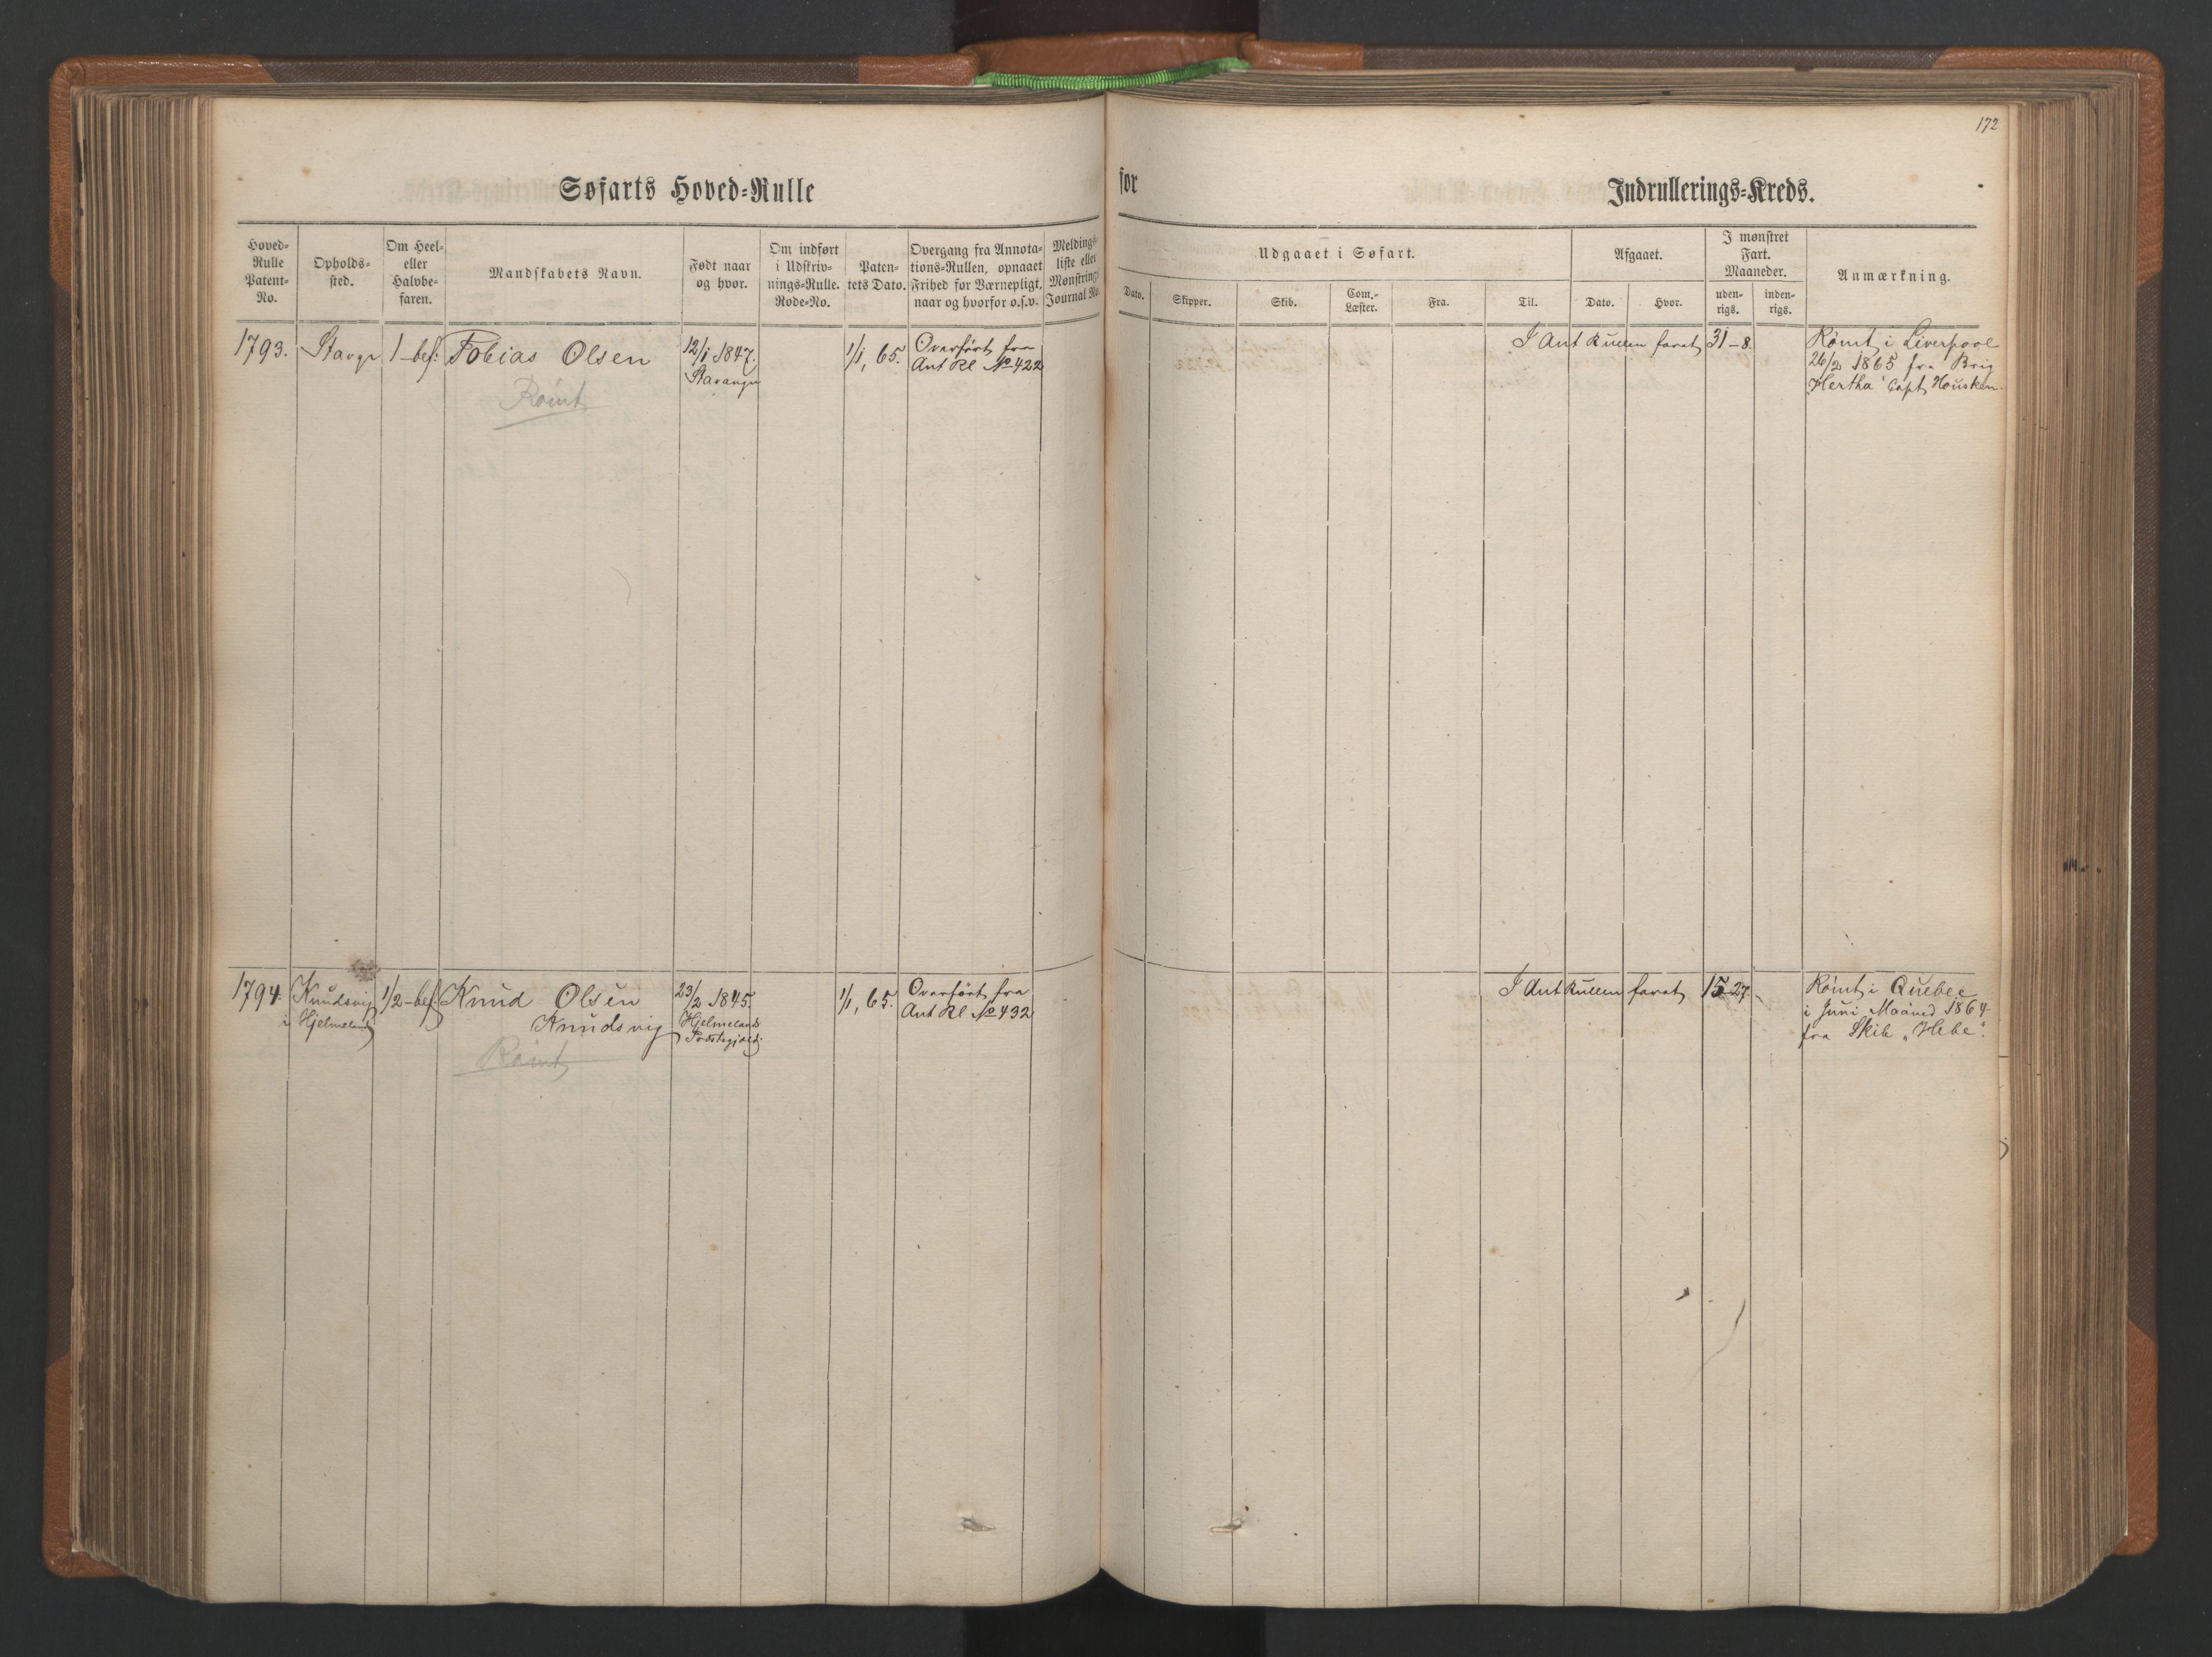 172
Søfarts Hoved-Rulle
for
Indrullerings-Kreds.
Hoved-
Rulle
Patent-
No.
Opholds-
sted.
Om Heel-
eller
Halvbe-
faren.
Mandskabets Navn.
Født naar
og hvor.
Om indført
i Udskriv-
nings-Rulle.
Rode-No.
Paten-
tets Dato.
Overgang fra Annota-
tions-Rullen, opnaaet
Frihed for Værnepligt,
naar og hvorfor o.s.v.
Meldings-
liste eller
Mønstrings-
Journal No.
Udgaaet i Søfart.
Dato.
Skipper.
Skib.
Com.-
Læster.
Fra.
Til.
Afgaaet.
Dato.
Hvor.
I mønstret
Fart.
Maaneder.
uden-
rigs.
inden-
rigs.
Anmærkning.
1793.
Stavgr
1-bef:
Tobias Olsen
Rømt
12/1 1847.
Stavanger
1/1, 65.
Overført fra
Ant Rl No 422
I Ant Rullen faret
31-8
Rømt i Liverpool
26/2 1865 fra Brig
"Hertha" Capt Housken.
1794.
Knudsvig
i Hjelmeland
1/2-bef:
Knud Olsen
Knudsvig
Rømt
23/2 1845.
Hjelmelands
Præstegjæld.
1/1, 65.
Overført fra
Ant Rl No 432
I Ant Rullen faret
15-27.
Rømt i Quebec
i Juni Maaned 1864
fra Skib "Hebe".